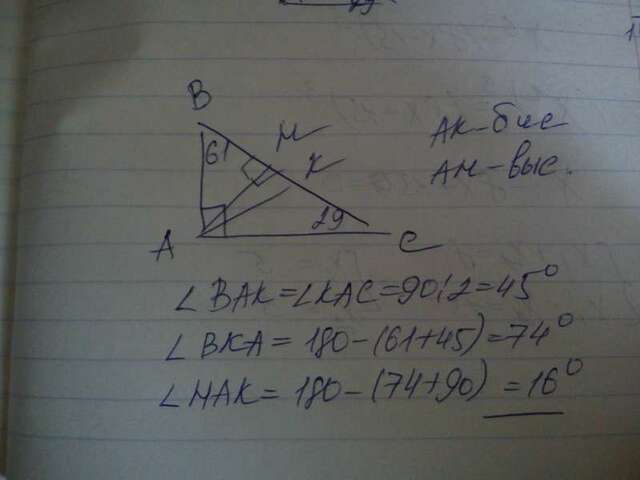 B
61
H
K
29
A
C
AK-бис
AH-выс.
∠BAK=∠KAC=90:2=45⁰
∠BKA=180-(61+45)=74⁰
∠HAK=180-(74+90)=16⁰